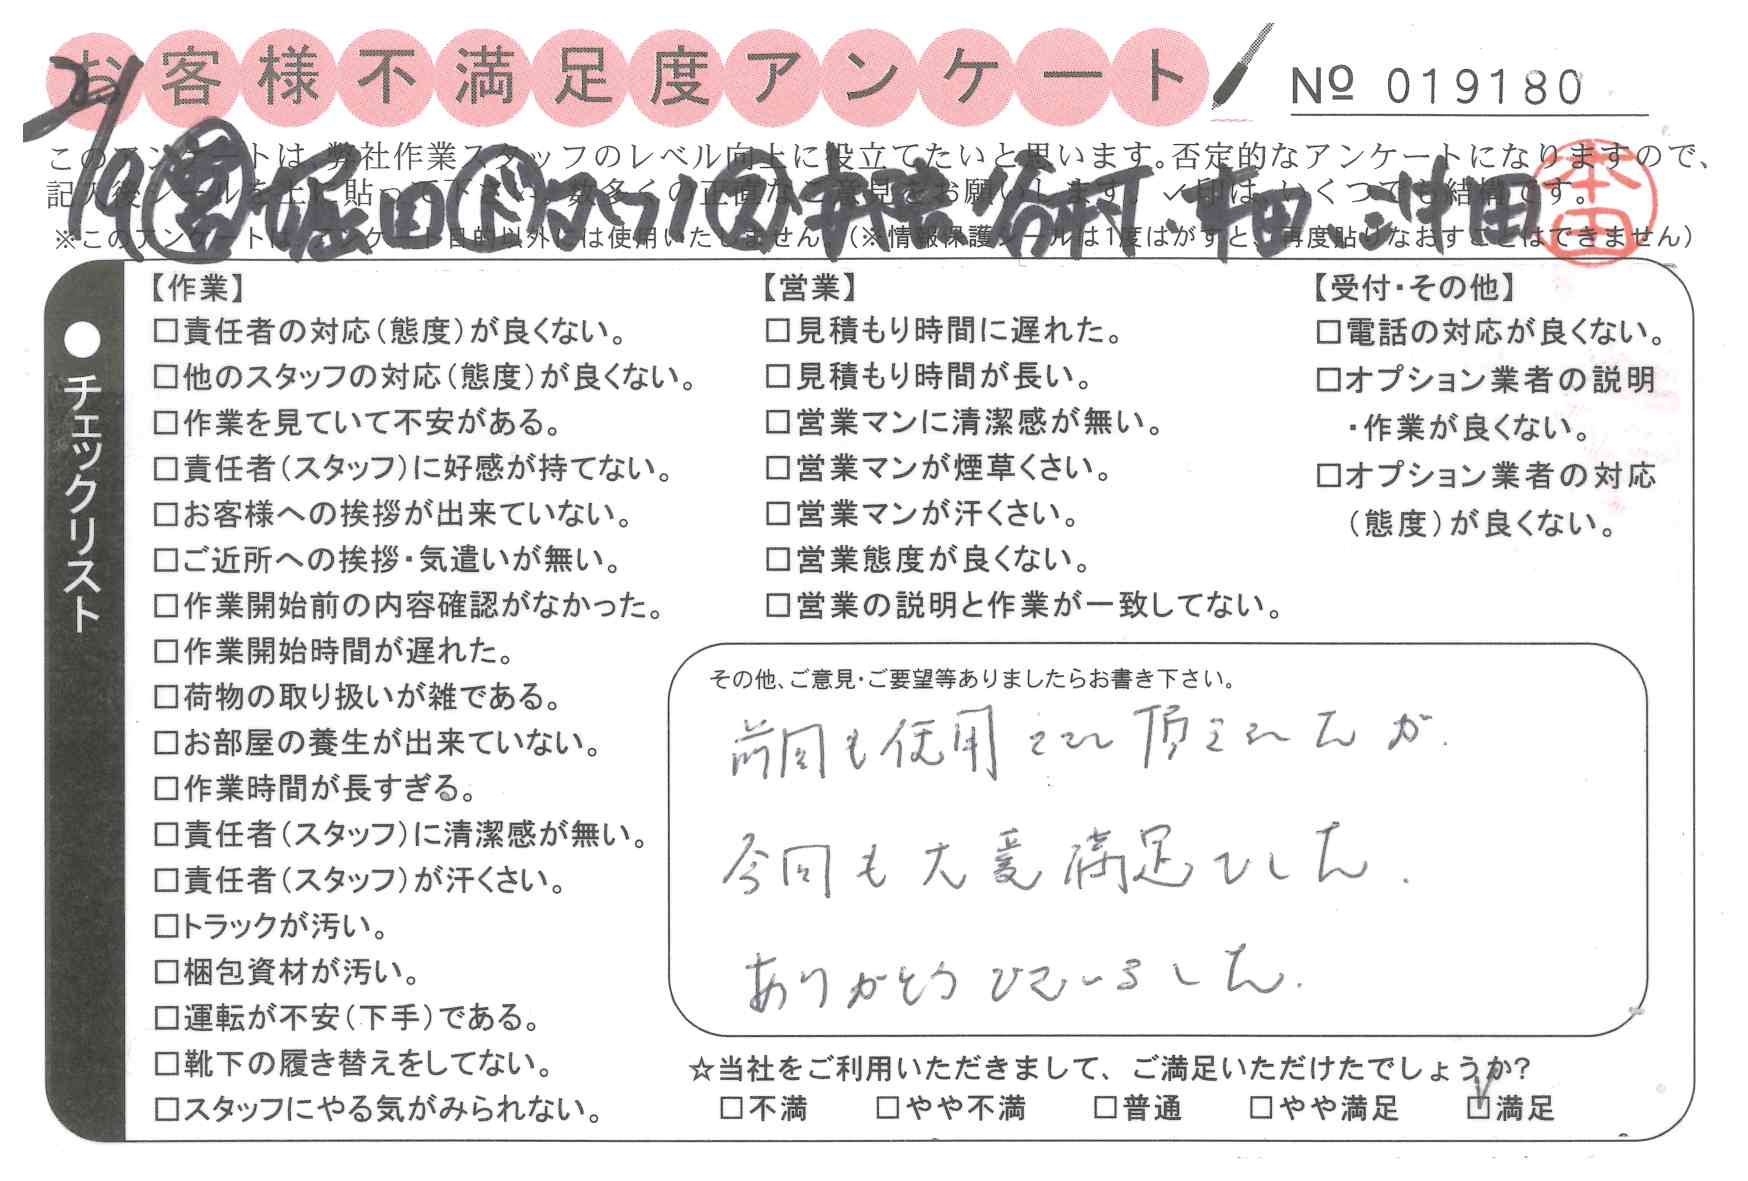 お客様不満足度アンケート
№ 019180
2/9 営 堀田 ド ス 谷村・幸田
本田
このアンケートは、弊社作業スタッフのレベル向上に役立てたいと思います。否定的なアンケートになりますので、
記入後シールを上に貼って下さい。数多くの正直なご意見をお願いします。✓印は、いくつでも結構です。
※このアンケートは、アンケート目的以外には使用いたしません。(※情報保護シールは1度はがすと、再度貼りなおすことはできません)
●チェックリスト
【作業】
□責任者の対応(態度)が良くない。
□他のスタッフの対応(態度)が良くない。
□作業を見ていて不安がある。
□責任者(スタッフ)に好感が持てない。
□お客様への挨拶が出来ていない。
□ご近所への挨拶・気遣いが無い。
□作業開始前の内容確認がなかった。
□作業開始時間が遅れた。
□荷物の取り扱いが雑である。
□お部屋の養生が出来ていない。
□作業時間が長すぎる。
□責任者(スタッフ)に清潔感が無い。
□責任者(スタッフ)が汗くさい。
□トラックが汚い。
□梱包資材が汚い。
□運転が不安(下手)である。
□靴下の履き替えをしてない。
□スタッフにやる気がみられない。
【営業】
□見積もり時間に遅れた。
□見積もり時間が長い。
□営業マンに清潔感が無い。
□営業マンが煙草くさい。
□営業マンが汗くさい。
□営業態度が良くない。
□営業の説明と作業が一致してない。
【受付・その他】
□電話の対応が良くない。
□オプション業者の説明
・作業が良くない。
□オプション業者の対応
(態度)が良くない。
その他、ご意見・ご要望等ありましたらお書き下さい。
前回も使用させて頂きましたが、
今回も大変満足でした。
ありがとうございました。
☆当社をご利用いただきまして、ご満足いただけたでしょうか?
□不満 □やや不満 □普通 □やや満足 ☑満足